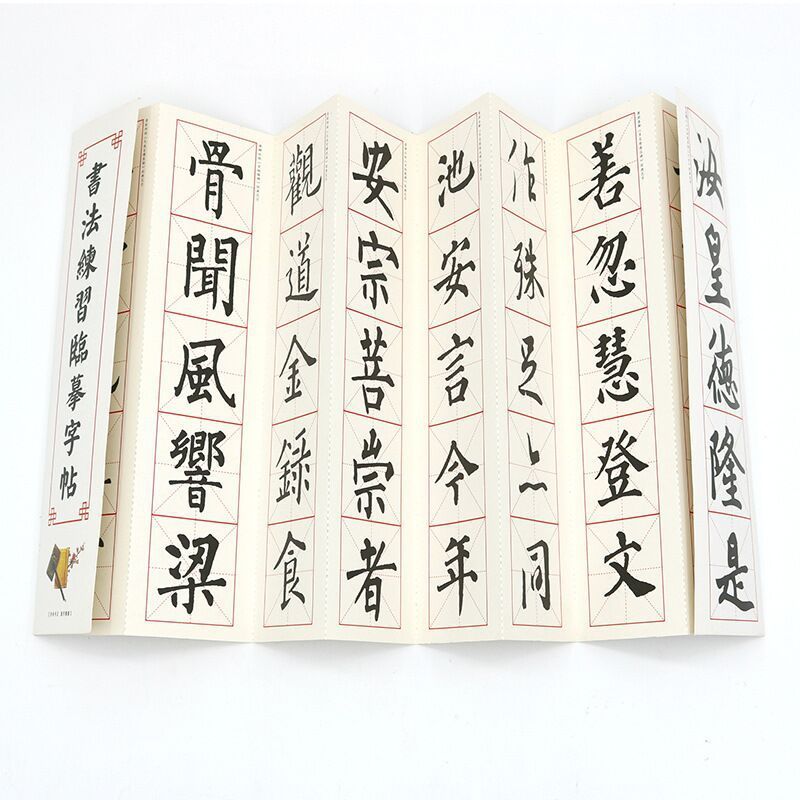 書法練習臨摹字帖
骨聞風響梁
觀道金録食
安宗菩崇者
池安言今年
作殊足同
善忽慧登文
汝皇德隆是